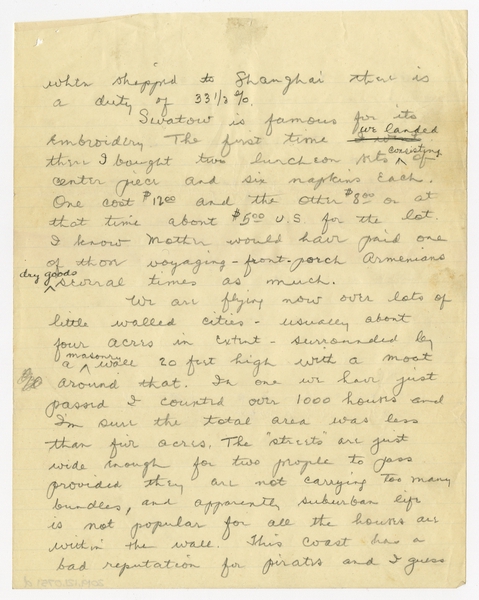 when shipped to Shanghai there is
a duty of 33 1/3 %.
Swatow is famous for its
embroidery. The first time we landed
there I bought two luncheon sets consisting of
center piece and six napkins each.
One cost $12.00 and the other $8.00 or at
that time about $5.00 U.S. for the lot.
I know Mother would have paid one
of those voyaging-front-porch Armenians
dry goods
several times as much.
We are flying now over lots of
little walled cities - usually about
four acres in extent - surrounded by
a masonry wall 20 feet high with a moat
around that. In one we have just
passed I counted over 1000 houses and
I'm sure the total area was less
than five acres. The "streets" are just
wide enough for two people to pass
provided they are not carrying too many
bundles, and apparently suburban life
is not popular for all the houses are
within the wall. This coast has a
bad reputation for pirates and I guess